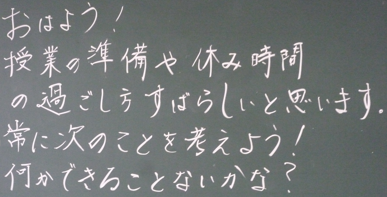 おはよう！
授業の準備や休み時間
の過ごし方すばらしいと思います。
常に次のことを考えよう！
何かできることないかな？